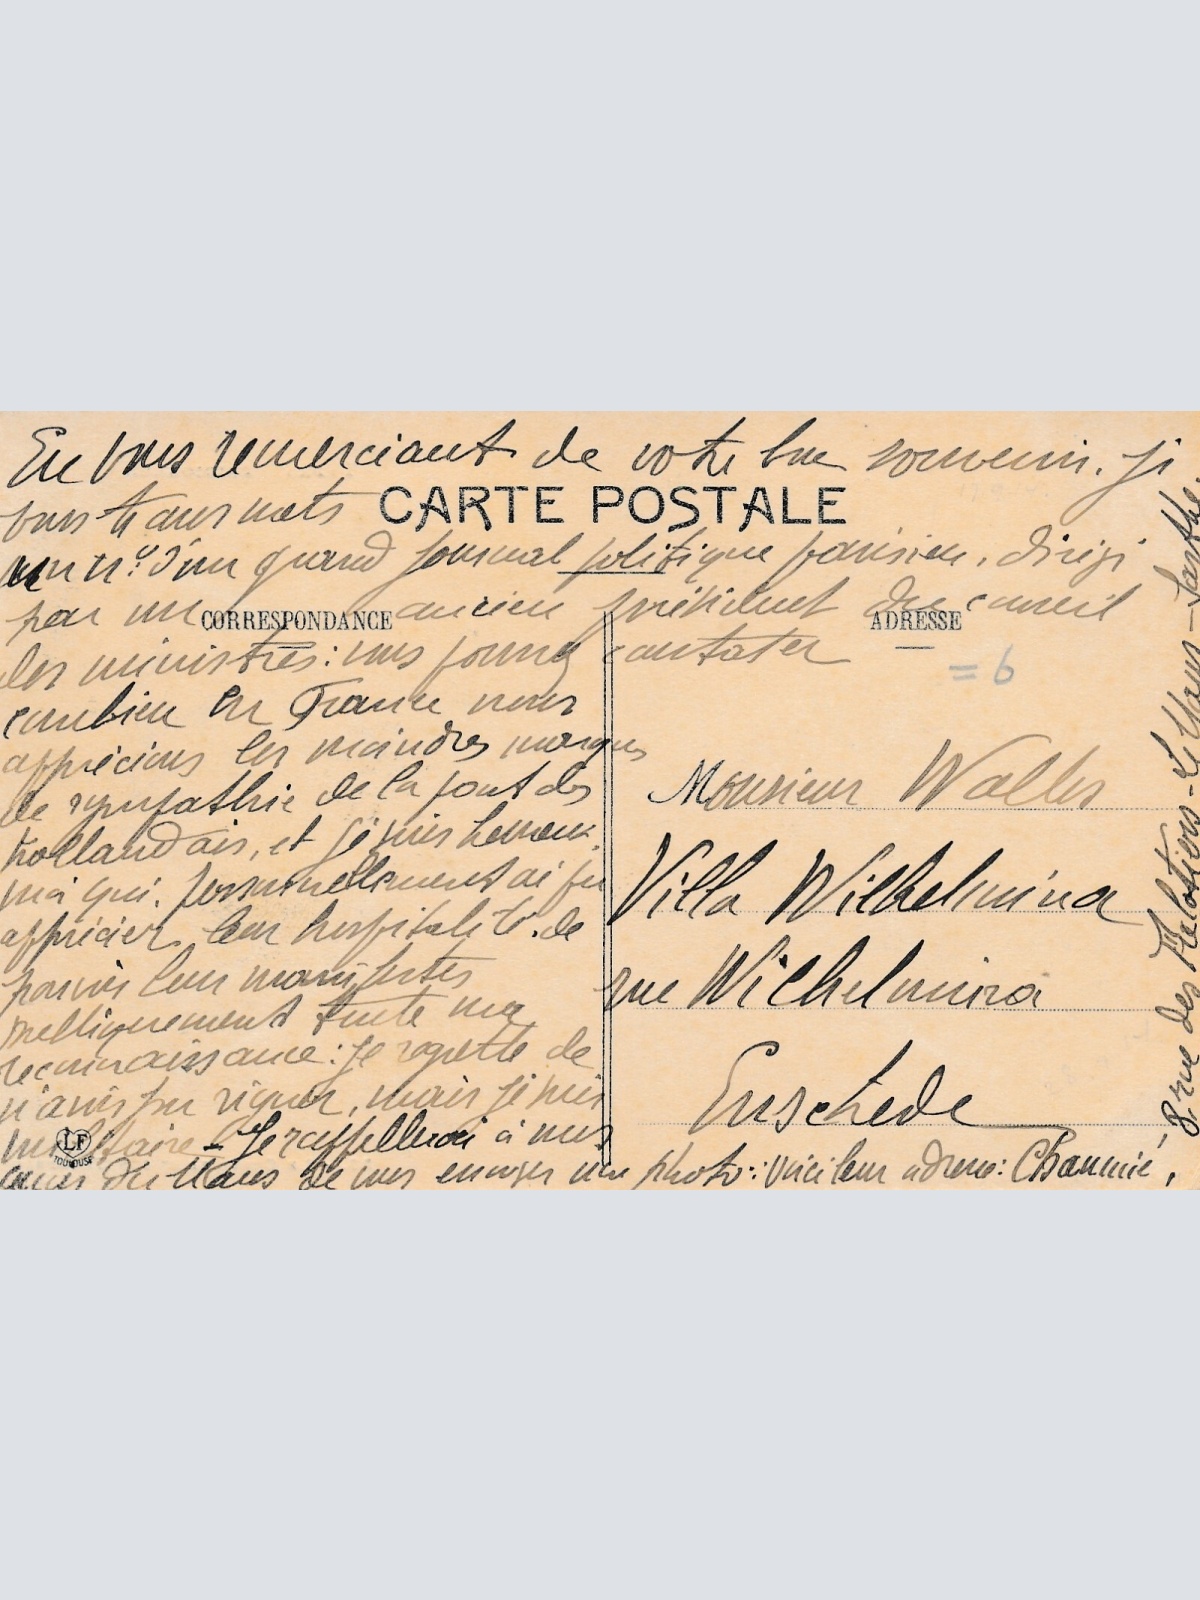 En vous remerciant de votre bon souvenir, je
vous transmets
CARTE POSTALE
un n.º d'un grand journal politique parisien, dirigé
par un ancien président du conseil
CORRESPONDANCE
ADRESSE
des ministres: vous pouvez constater
= 6
combien en France nous
apprécions les moindres marques
de sympathie de la part des
hollandais, et je suis heureux,
moi qui, personnellement ai pu
apprécier leur hospitalité, de
pouvoir leur manifester
publiquement toute ma
reconnaissance: je regrette de
n'avoir pu signer, mais je suis
militaire - Je rappellerai à mes
amis du Mans de vous envoyer une photo: voici leur adresse: Chaumié,
8 rue des Filotiers - Le Mans - Sarthe.
LF
TOULOUSE
Monsieur Walles
Villa Wilhelmina
rue Wilhelmina
Enschede